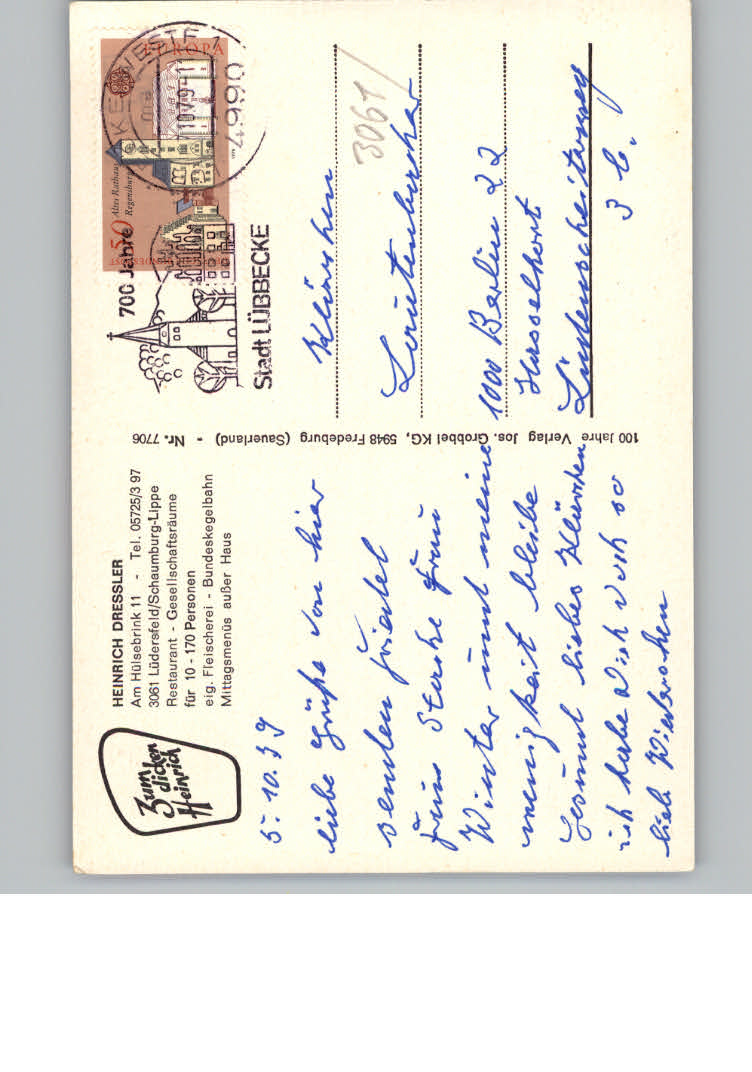 Zum
dicken
Heinrich
HEINRICH DRESSLER
Am Hülsebrink 11 - Tel. 05725/3 97
3061 Lüdersfeld/Schaumburg-Lippe
Restaurant - Gesellschaftsräume
für 10 - 170 Personen
eig. Fleischerei - Bundeskegelbahn
Mittagsmenüs außer Haus
5. 10. 79
liebe Grüße von hier
senden Friedel
Frau Starke Frau
Winter und meine
wenigkeit bleibe
Gesund liebes Klärchen
ich habe dich doch so
lieb
100 Jahre Verlag Jos. Grobbel KG, 5948 Fredeburg (Sauerland) - Nr. 7706
700 Jahre
Stadt LÜBBECKE
4990
EUROPA
50
Altes Rathaus
Regensburg
3061
Klärchen
1000 Berlin 22
3 b.